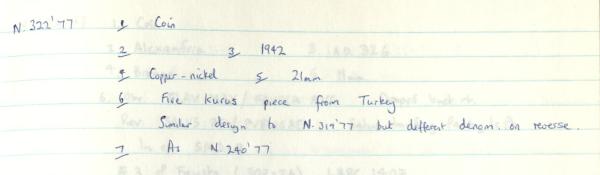 N. 322'77 1 Coin
2 3 1942
4 Copper-nickel 5 21mm
6 Five kurus piece from Turkey
Similar design to N.319'77 but different denom. on reverse.
7 As N.240'77